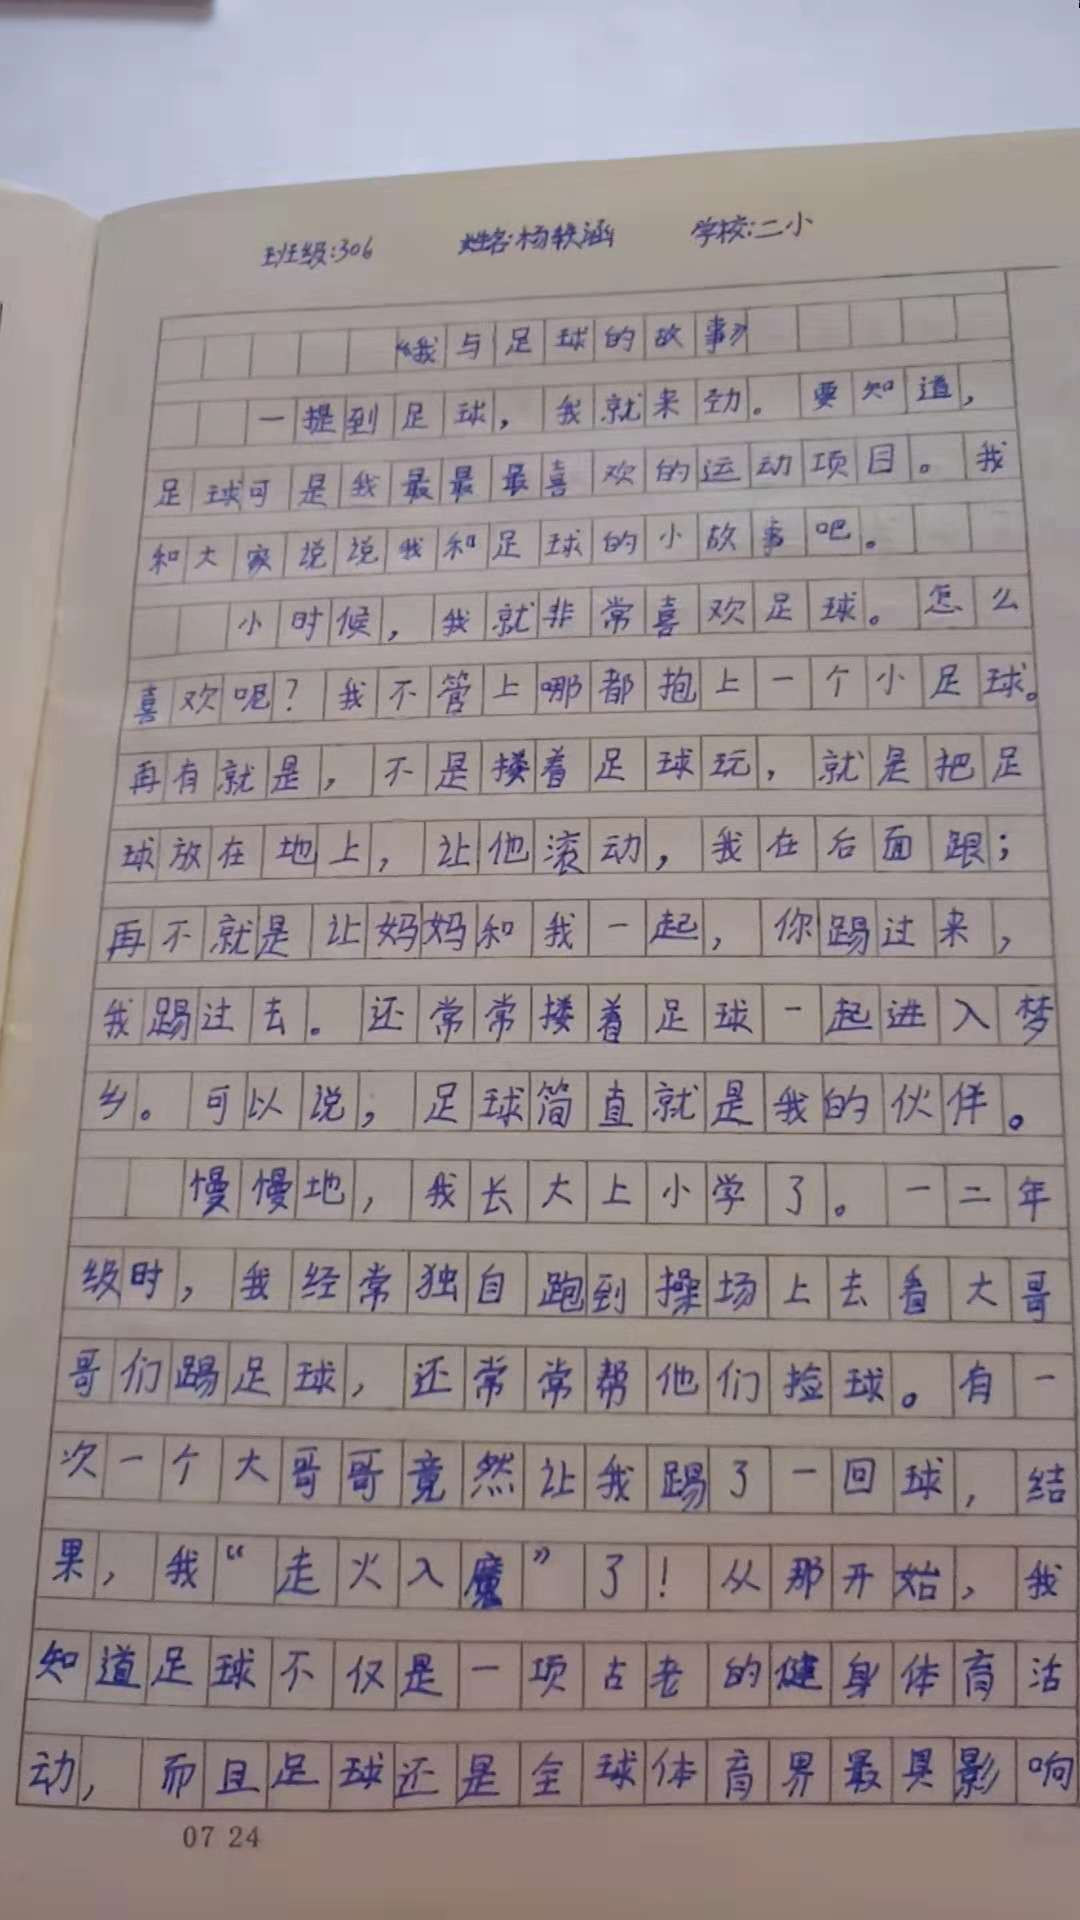 班级:306 姓名:杨轶涵 学校:二小
《我与足球的故事》
一提到足球，我就来劲。要知道，
足球可是我最最最喜欢的运动项目。我
和大家说说我和足球的小故事吧。
小时候，我就非常喜欢足球。怎么
喜欢呢？我不管上哪都抱上一个小足球。
再有就是，不是搂着足球玩，就是把足
球放在地上，让他滚动，我在后面跟；
再不就是让妈妈和我一起，你踢过来，
我踢过去。还常常搂着足球一起进入梦
乡。可以说，足球简直就是我的伙伴。
慢慢地，我长大上小学了。一二年
级时，我经常独自跑到操场上去看大哥
哥们踢足球，还常常帮他们捡球。有一
次一个大哥哥竟然让我踢了一回球，结
果，我“走火入魔”了！从那开始，我
知道足球不仅是一项古老的健身体育活
动，而且足球还是全球体育界最具影响
07 24